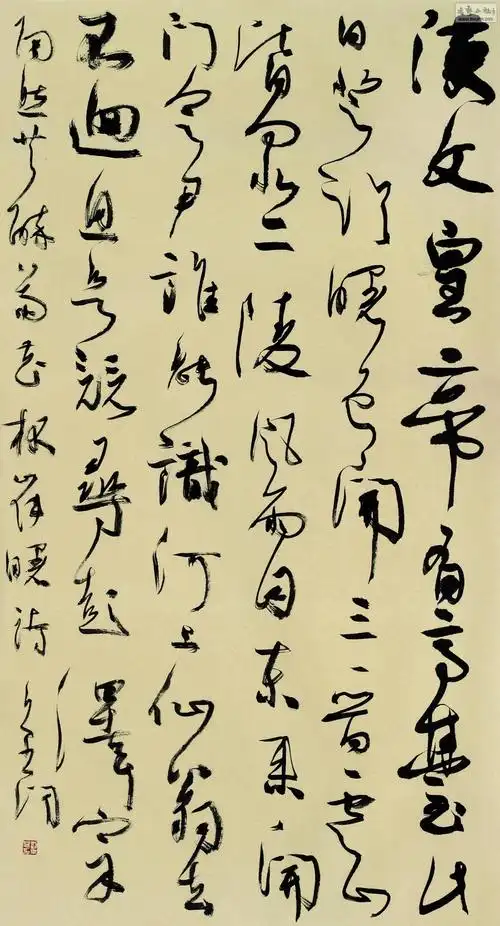 漢文皇帝有高臺此
日登臨曙色開三晉雲山
皆向北二陵風雨自東來開
門令尹誰能識河上仙翁去
不迴且欲競尋彭澤宰
陶然共醉菊花杯崔曙詩